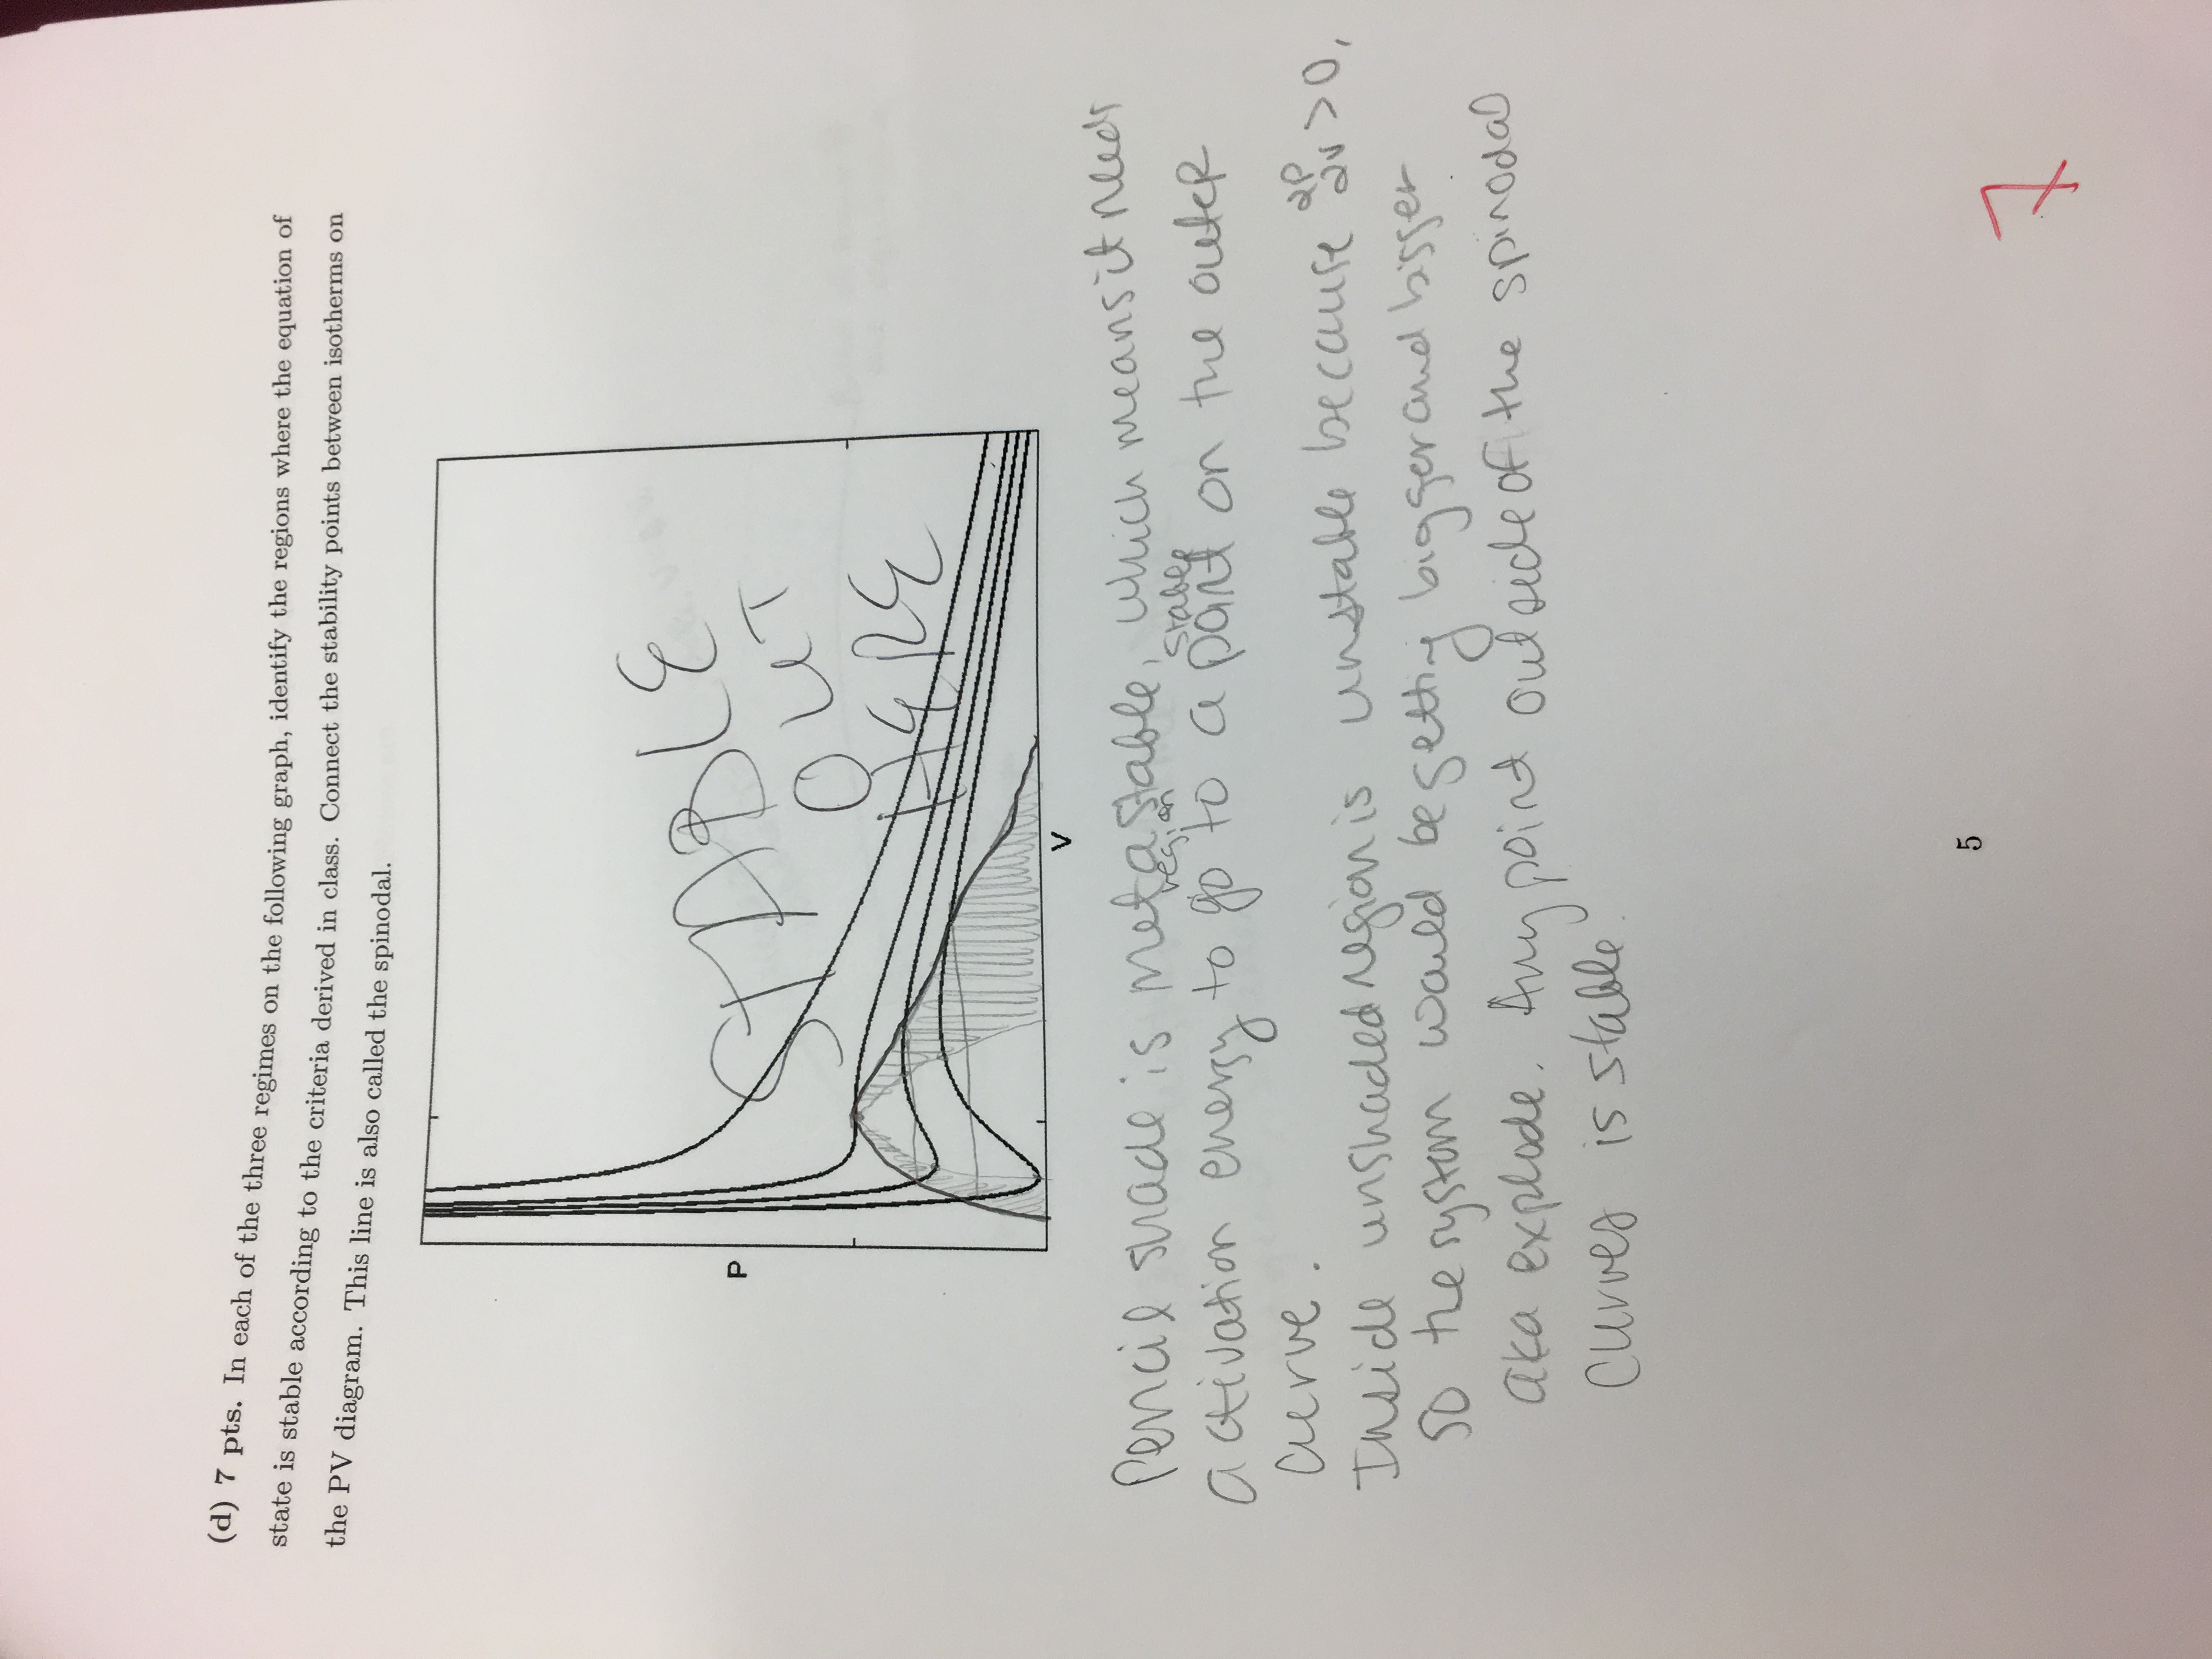 (d) 7 pts. In each of the three regimes on the following graph, identify the regions where the equation of
state is stable according to the criteria derived in class. Connect the stability points between isotherms on
the PV diagram. This line is also called the spinodal.
STABLE
OUT
HERE
P
V
Pencil shade is metastable, which means it needs
region stable
activation energy to go to a point on the outer
curve.
Inside unshaded region is unstable because ∂P/∂V > 0,
so the system would be getting bigger and bigger
aka explode. Any point outside of the spinodal
curves is stable.
5
7